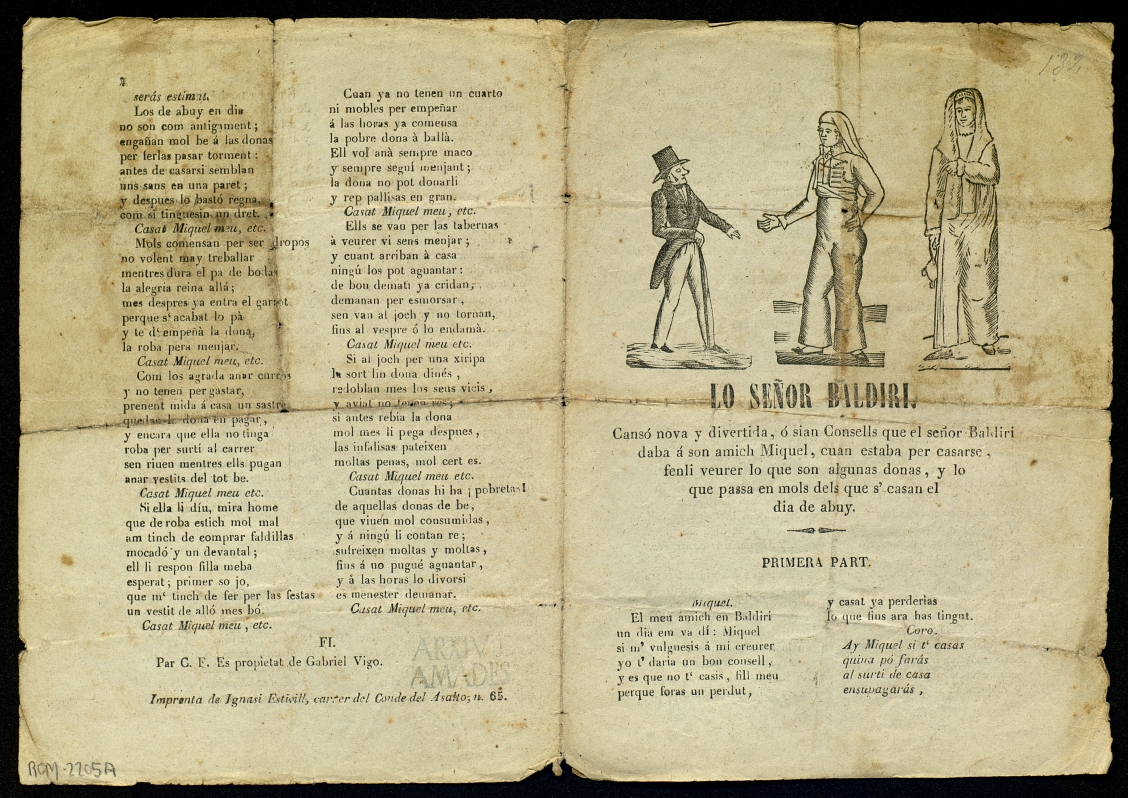 4
serás estimat.
Los de abuy en dia
no son com antigament;
engañan mol be á las donas
per ferlas pasar torment:
antes de casarsi semblan
uns sans en una paret;
y despues lo bastó regna,
com si tinguesin un dret.
Casat Miquel meu, etc.
Mols comensan per ser dropos
no volent may treballar
mentres dura el pa de bodas
la alegria reina allá;
mes despres ya entra el garrot
perque s' acabat lo pà
y te d' empeñà la dona,
la roba pera menjar.
Casat Miquel meu, etc.
Com los agrada anar curros
y no tenen per gastar,
prenent mida á casa un sastre
quedas la dona en pagar,
y encara que ella no tinga
roba per surtí al carrer
sen riuen mentres ells pugan
anar vestits del tot be.
Casat Miquel meu etc.
Si ella li díu, mira home
que de roba estich mol mal
am tinch de comprar faldillas
mocadó y un devantal;
ell li respon filla meba
esperat; primer so jo,
que m' tinch de fer per las festas
un vestit de alló mes bó.
Casat Miquel meu, etc.
FI.
Par C. F. Es propietat de Gabriel Vigo.
Imprenta de Ignasi Estivill, carrer del Conde del Asalto, n. 65.
Cuan ya no tenen un cuarto
ni mobles per empeñar
á las horas ya comensa
la pobre dona à ballà.
Ell vol anà sempre maco
y sempre seguí menjant;
la dona no pot donarli
y rep pallisas en gran.
Casat Miquel meu, etc.
Ells se van per las tabernas
à veurer vi sens menjar;
y cuant arriban à casa
ningú los pot aguantar:
de bon dematí ya cridan,
demanan per esmorsar,
sen van al joch y no tornan,
fins al vespre ó lo endamà.
Casat Miquel meu etc.
Si al joch per una xiripa
la sort lin dona dinés,
redoblan mes los seus vicis,
y aviat no tenen res;
si antes rebia la dona
mol mes li pega despues,
las infalisas pateixen
moltas penas, mol cert es.
Casat Miquel meu etc.
Cuantas donas hi ha ¡pobretas!
de aquellas donas de be,
que viuen mol consumidas,
y á ningú li contan re;
sufreixen moltas y moltas,
fins á no pugué aguantar,
y à las horas lo divorsi
es menester demanar.
Casat Miquel meu, etc.
ARXIV J.
AMADES
RCM-2205A
132
LO SEÑOR BALDIRI.
Cansó nova y divertida, ó sian Consells que el señor Baldiri
daba á son amich Miquel, cuan estaba per casarse,
fenli veurer lo que son algunas donas, y lo
que passa en mols dels que s' casan el
dia de abuy.
PRIMERA PART.
Miquel.
El meu amich en Baldiri
un dia em va dí: Miquel
si m' vulguesis á mi creurer
yo t' daria un bon consell,
y es que no t' casis, fill meu
perque foras un perdut,
y casat ya perderias
lo que fins ara has tingut.
Coro.
Ay Miquel si t' casas
quina pó farás
al surti de casa
ensupagarás,